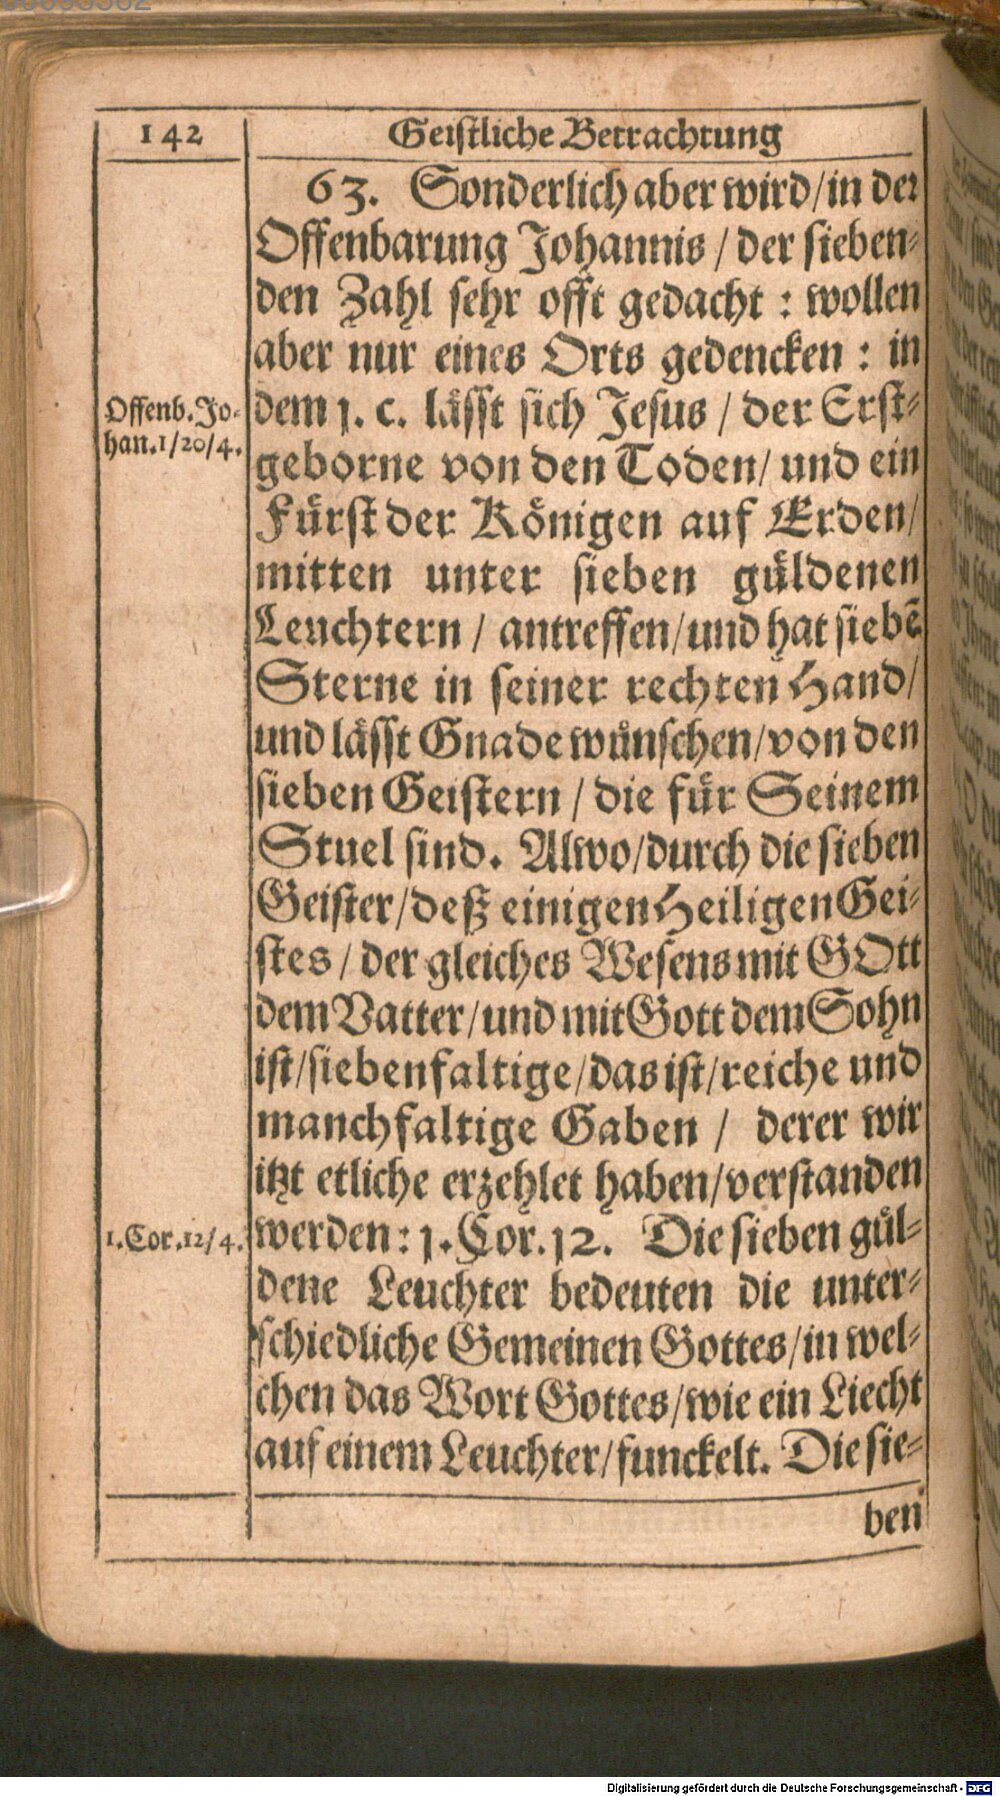 142
Geistliche Betrachtung
63. Sonderlich aber wird/in der
Offenbarung Johannis / der sieben⸗
den Zahl sehr offt gedacht : wollen
aber nur eines Orts gedencken : in
Offenb. Jo⸗
han. 1/20/4.
dem 1. c. lässt sich Jesus / der Erst⸗
geborne von den Toden/ und ein
Fürst der Königen auf Erden/
mitten unter sieben güldenen
Leuchtern / antreffen/und hat siebẽ
Sterne in seiner rechten Hand/
und lässt Gnade wünschen/von den
sieben Geistern / die für Seinem
Stuel sind. Alwo/durch die sieben
Geister/deß einigen Heiligen Gei⸗
stes / der gleiches Wesens mit GOtt
dem Vatter/und mit Gott dem Sohn
ist/siebenfaltige/das ist/reiche und
manchfaltige Gaben / derer wir
itzt etliche erzehlet haben/verstanden
1. Cor. 12/4.
werden: 1. Cor. 12. Die sieben gül⸗
dene Leuchter bedeuten die unter⸗
schiedliche Gemeinen Gottes/in wel⸗
chen das Wort Gottes/wie ein Liecht
auf einem Leuchter/funckelt. Die sie⸗
ben
Digitalisierung gefördert durch die Deutsche Forschungsgemeinschaft - DFG